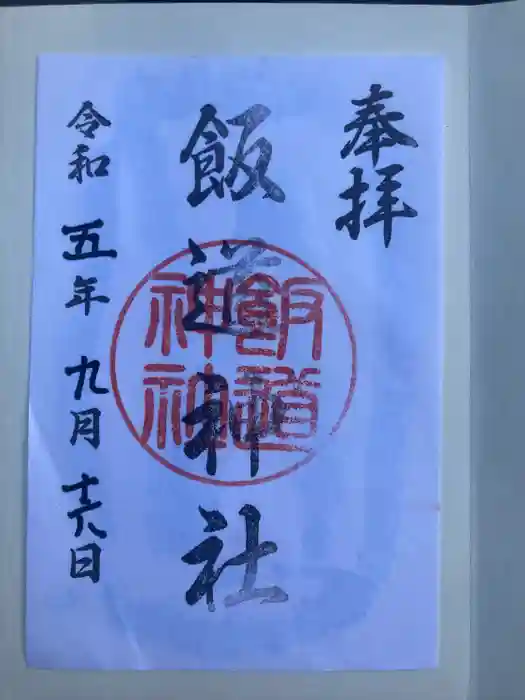 奉拝
飯道神社
飯道
神社
令和五年九月十八日